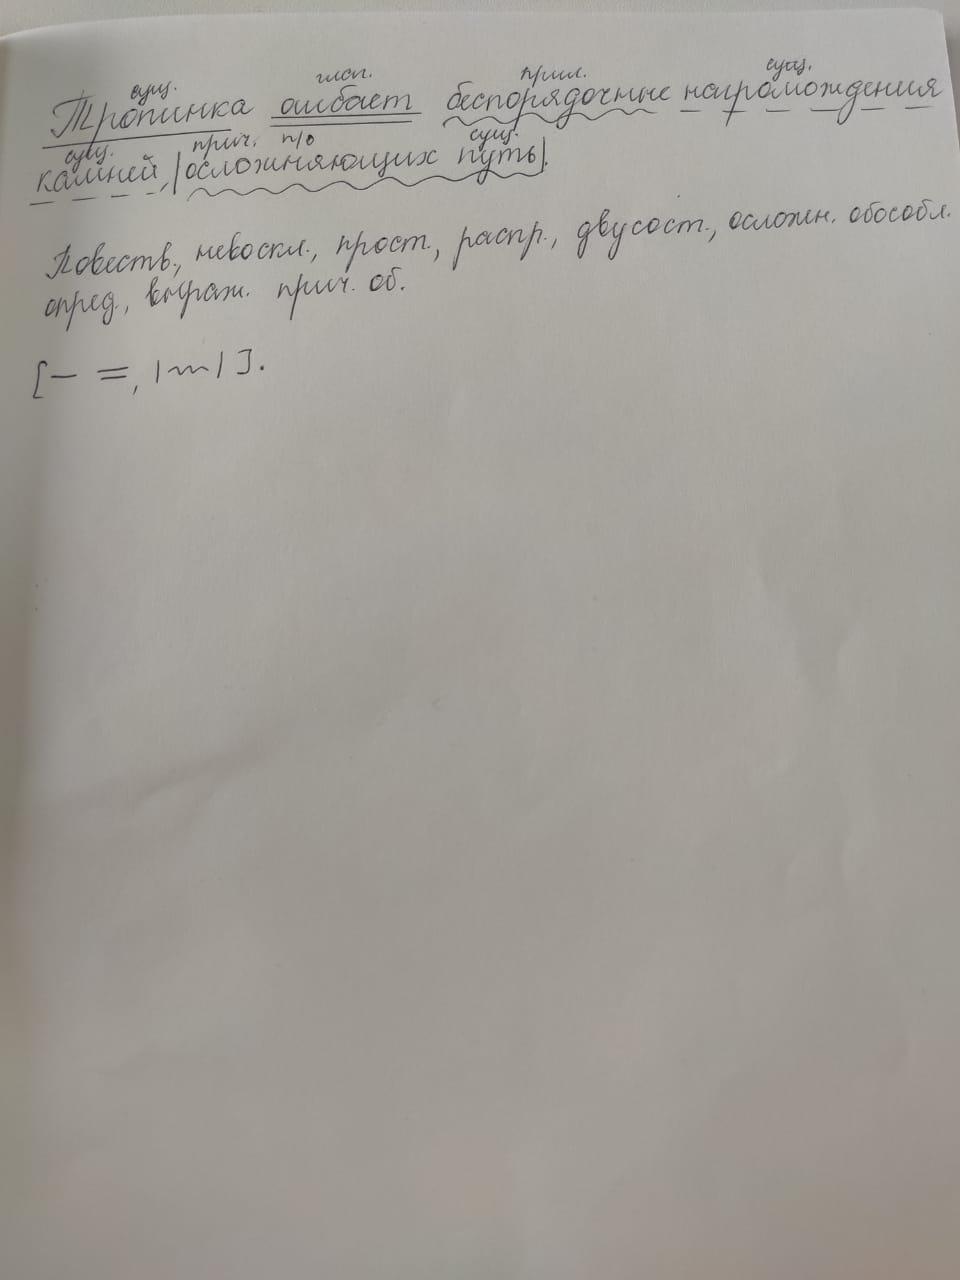 сущ. глаг. прил. сущ.
Тропинка огибает беспорядочные нагромождения
сущ. прич. п/о сущ.
камней, |осложняющих путь|.
Повеств., невоскл., прост., распр., двусост., осложн. обособл.
опред., выраж. прич. об.
[— =, |~~|].